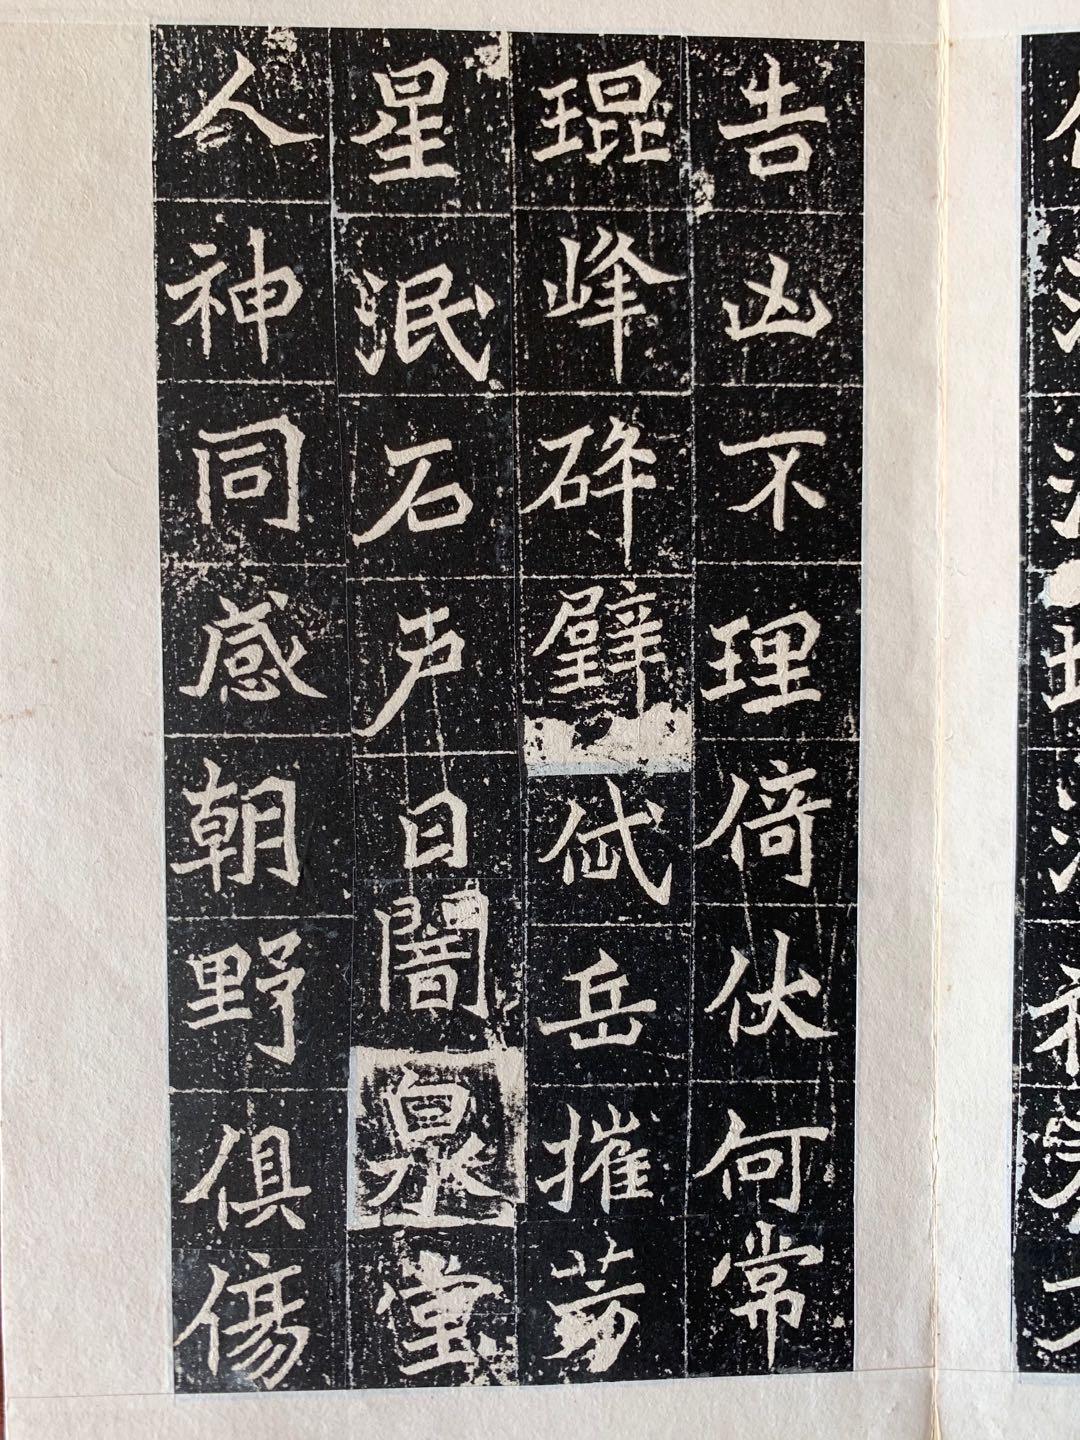 告凶不理倚伏何常
琨峰碎璧岱岳摧芳
星泯石戶日闇泉堂
人神同感朝野俱傷